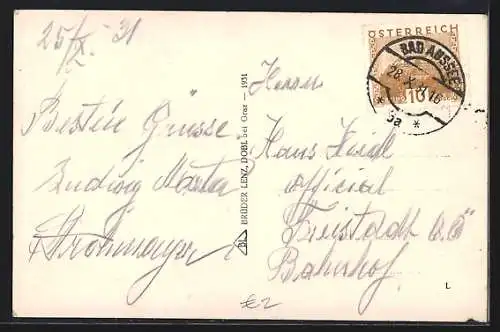 25/X. 31
Besten Grüsse
Ludwig Marta
Strohmayer
BL BRÜDER LENZ, DOBL bei Graz – 1931
ÖSTERREICH
BAD AUSSEE
28. X
10
* 3a *
Herrn
Hans
Official
Freistadt O.Ö
Bahnhof
L
€2